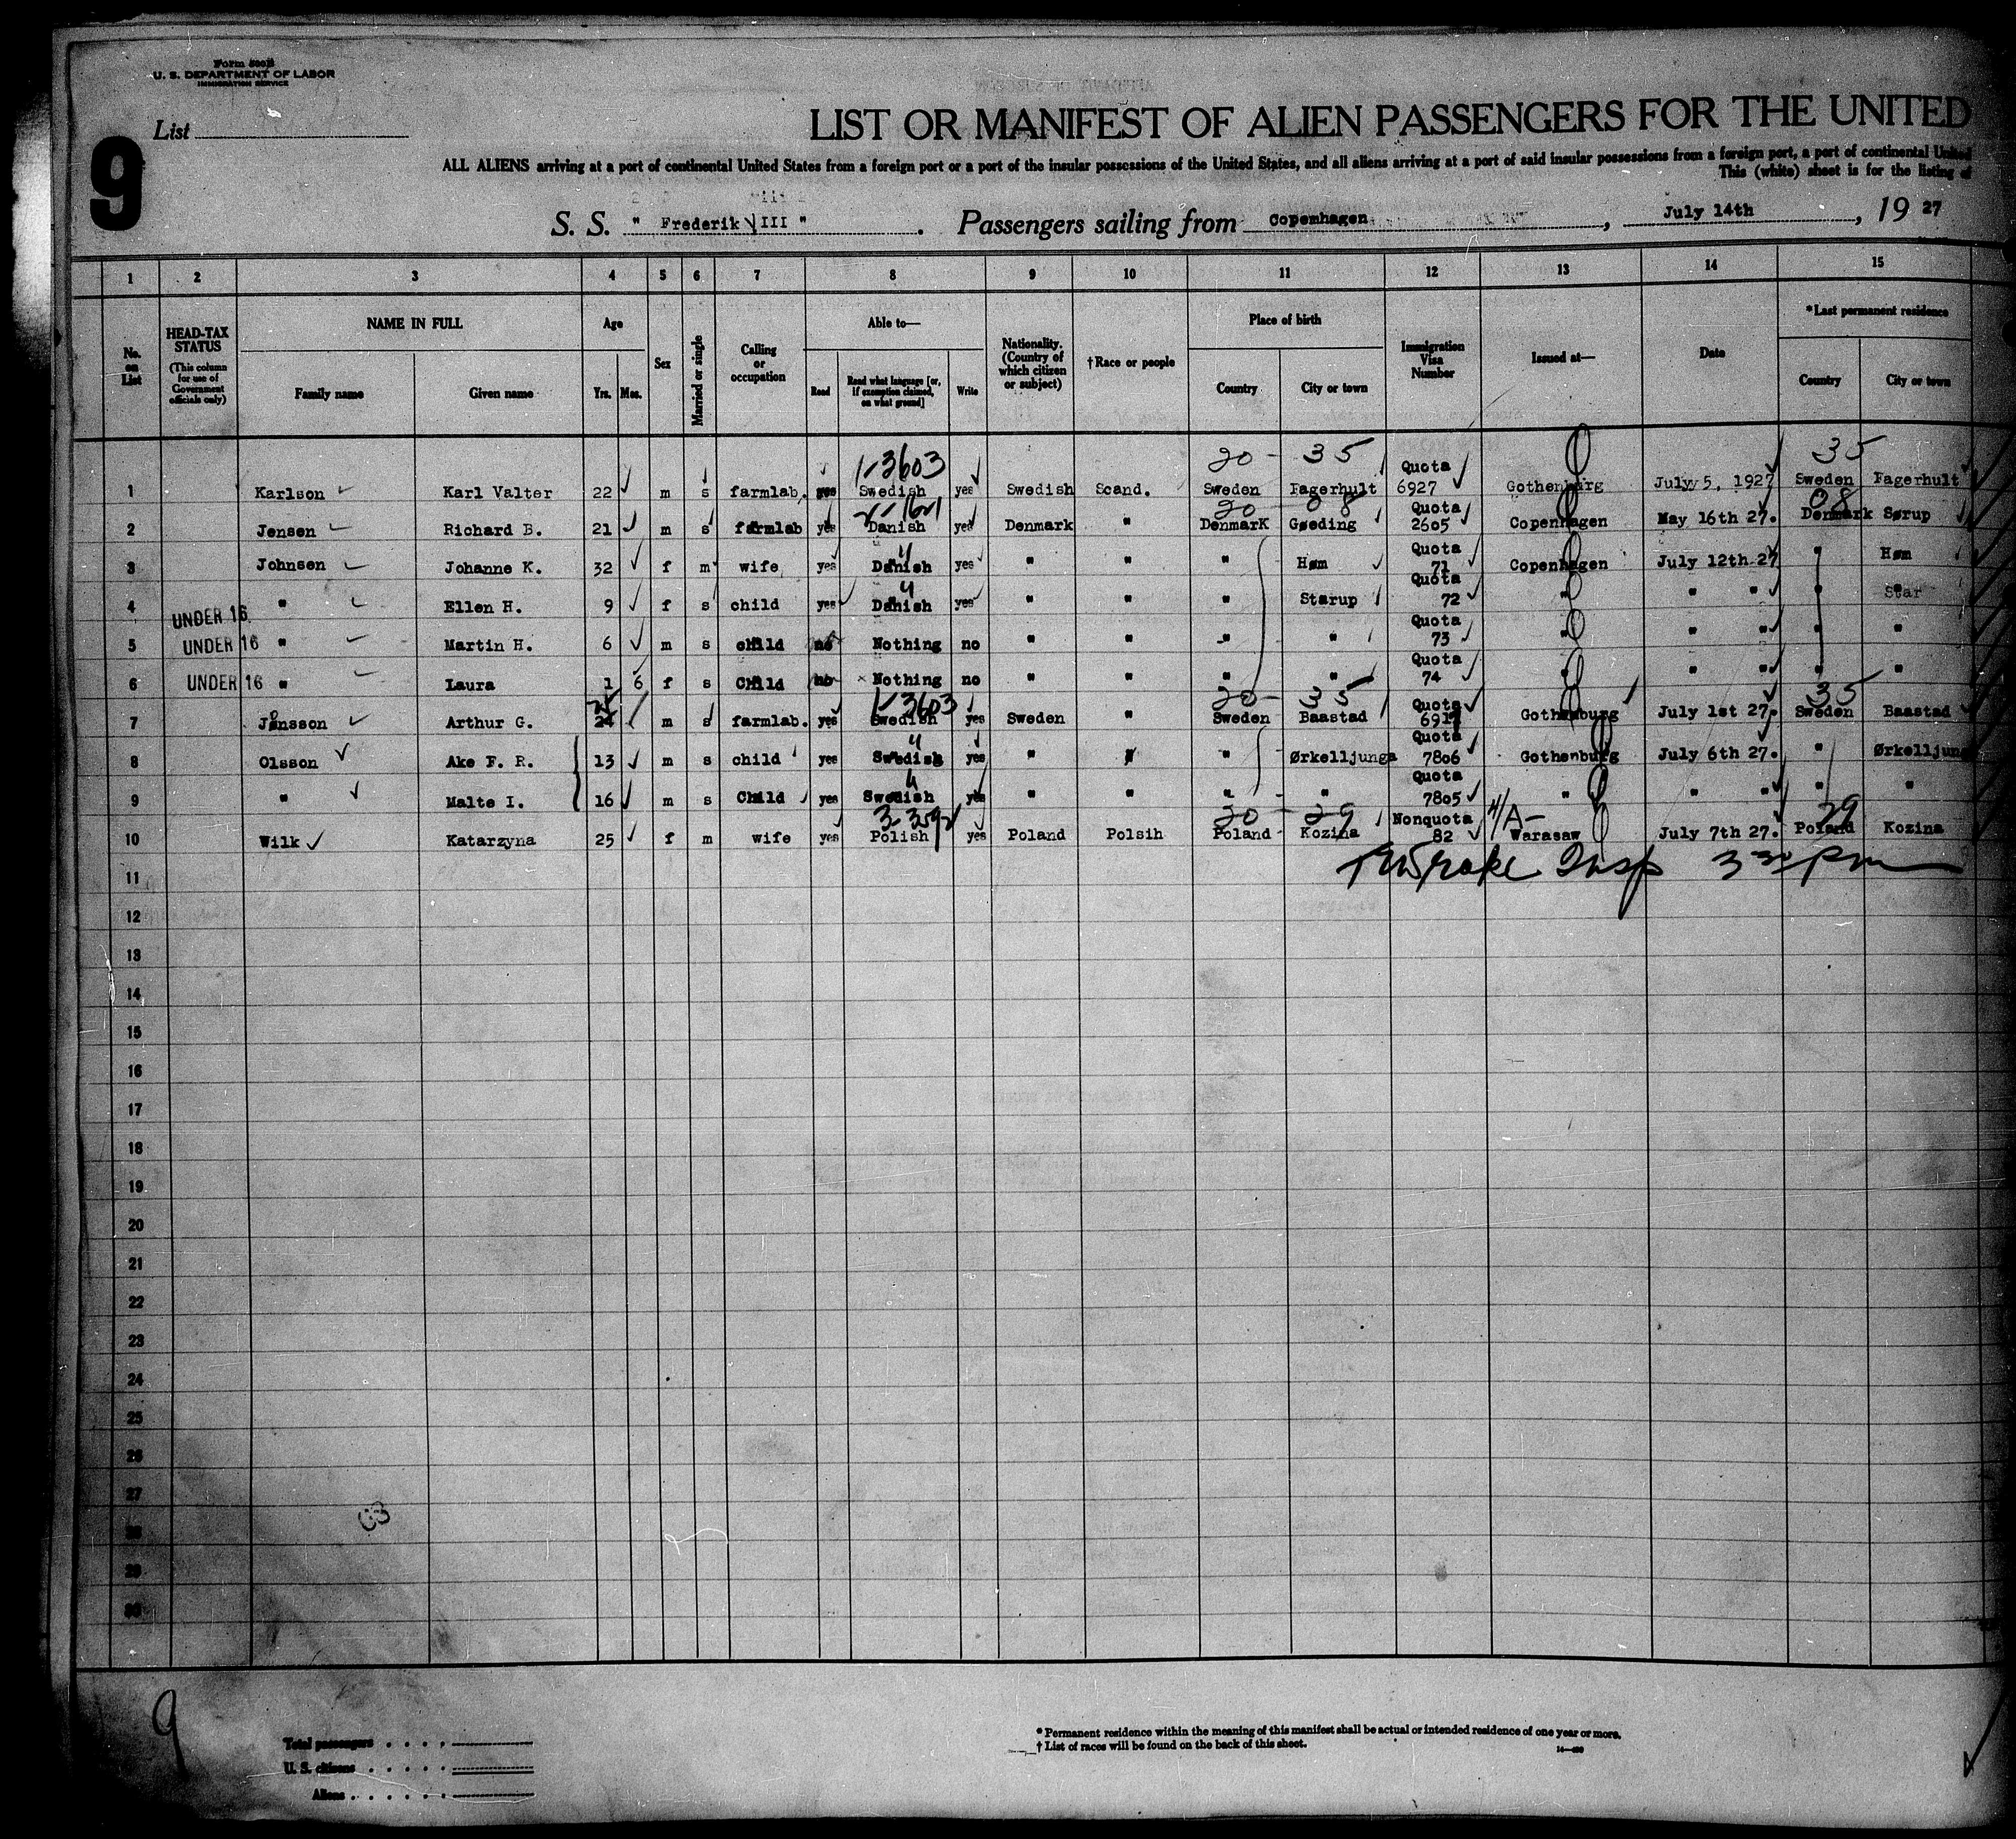 Form 500B
U. S. DEPARTMENT OF LABOR
IMMIGRATION SERVICE
List
9
LIST OR MANIFEST OF ALIEN PASSENGERS FOR THE UNITED
ALL ALIENS arriving at a port of continental United States from a foreign port or a port of the insular possessions of the United States, and all aliens arriving at a port of said insular possessions from a foreign port, a port of continental United
This (white) sheet is for the listing of
S. S. " Frederik VIII " . Passengers sailing from Copenhagen , July 14th , 19 27
1 2 3 4 5 6 7 8 9 10 11 12 13 14 15
No. on List
HEAD-TAX STATUS (This column for use of Government officials only)
NAME IN FULL
Family name Given name
Age
Yrs. Mos.
Sex
Married or single
Calling or occupation
Able to—
Read Read what language [or, if exemption claimed, on what ground] Write
Nationality. (Country of which citizen or subject)
†Race or people
Place of birth
Country City or town
Immigration Visa Number
Issued at—
Date
*Last permanent residence
Country City or town
1-3603 20 - 35 35
1 Karlson Karl Valter 22 m s farmlab. yes Swedish yes Swedish Scand. Sweden Fagerhult Quota 6927 Gothenburg July 5, 1927 Sweden Fagerhult
2-1621 20 08 08
2 Jensen Richard B. 21 m s farmlab yes Danish yes Denmark " DenmarK Gøeding Quota 2605 Copenhagen May 16th 27. Denmark Sørup
3 Johnsen Johanne K. 32 f m wife yes Danish yes " " " Høm Quota 71 Copenhagen July 12th 27 " Høm
4 UNDER 16 " Ellen H. 9 f s child yes Danish yes " " " Starup Quota 72 " " " " Star
5 UNDER 16 " Martin H. 6 m s child no Nothing no " " " " Quota 73 " " " " "
6 UNDER 16 " Laura 1 6 f s Child no Nothing no " " " " Quota 74 " " " " "
1-3603 20 - 35 35
7 Jönsson Arthur G. 24 m s farmlab. yes Swedish yes Sweden " Sweden Baastad Quota Gothenburg July 1st 27. Sweden Baastad
8 Olsson Ake F. R. 13 m s child yes Swedish yes " " " Ørkelljunga Quota 7806 Gothenburg July 6th 27. " Ørkelljung
9 " Malte I. 16 m s Child yes Swedish yes " " " " Quota 7805 " " " " "
20 - 29 4/A- 29
10 Wilk Katarzyna 25 f m wife yes Polish yes Poland Polsih Poland Kozina Nonquota 82 Warasaw July 7th 27. Poland Kozina
Insp 3 30 pm
11
12
13
14
15
16
17
18
19
20
21
22
23
24
25
26
27
28
29
30
9
Total passengers
U. S. citizens
Aliens
* Permanent residence within the meaning of this manifest shall be actual or intended residence of one year or more.
† List of races will be found on the back of this sheet.